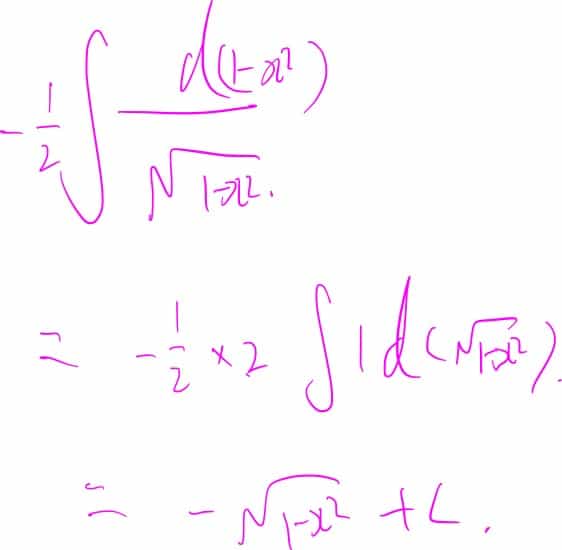 -\frac{1}{2} \int \frac{d(1-x^2)}{\sqrt{1-x^2}}.
= -\frac{1}{2} \times 2 \int 1 d(\sqrt{1-x^2}).
= -\sqrt{1-x^2} + C.